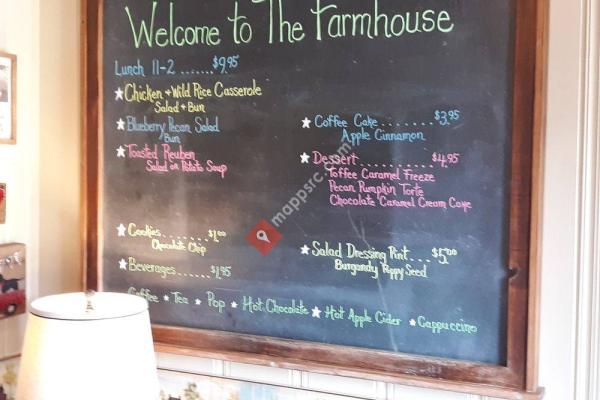 Welcome to The Farmhouse
Lunch 11-2 ....... $9.95
Chicken + Wild Rice Casserole
Salad + Bun
Blueberry Pecan Salad
Bun
Toasted Reuben
Salad or Potato Soup
Coffee Cake ........ $3.95
Apple Cinnamon
Dessert ........... $4.95
Toffee Caramel Freeze
Pecan Pumpkin Torte
Chocolate Caramel Cream Cake
Cookies ....... $1.00
Chocolate Chip
Beverages ...... $1.95
Salad Dressing Pint .... $5.00
Burgandy Poppy Seed
Coffee ★ Tea ★ Pop ★ Hot Chocolate ★ Hot Apple Cider ★ Cappuccino
mappsrc.com